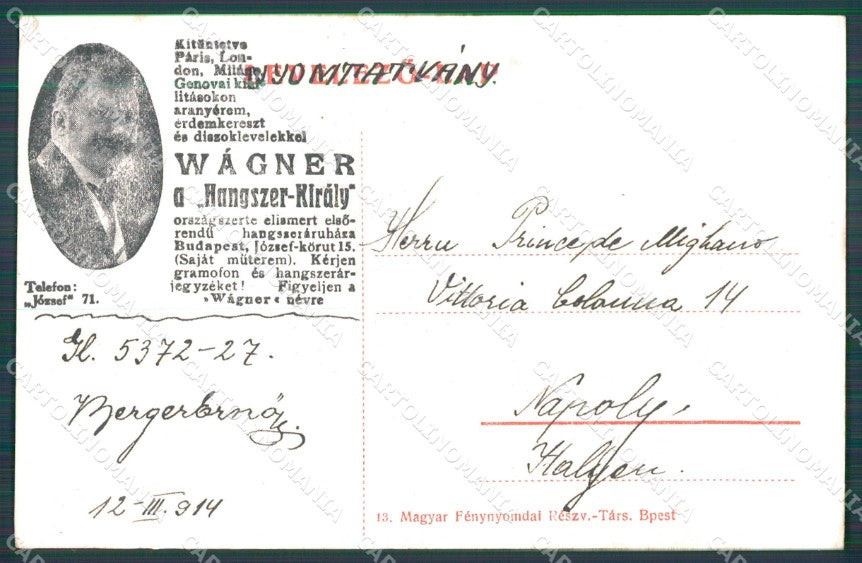 Kitüntetve
Páris, Lon-
don, Miláno
Genovai kiál-
litásokon
aranyérem,
érdemkereszt
és diszoklevelekkel
WÁGNER
a „Hangszer-Király"
országszerte elismert első-
rendű hangszeráruháza
Budapest, József-körut 15.
(Saját műterem). Kérjen
gramofon és hangszerár-
jegyzéket! Figyeljen a
»Wágner« névre
Telefon:
„József" 71.
NYOMTATVÁNY.
5372-27.
Berger Ernő
12-III. 914
Herrn Principe de Mighano
Vittoria Colonna 14
Napoly,
Italyen.
13. Magyar Fénynyomdai Részv.-Társ. Bpest
CARTOLINOMANIA